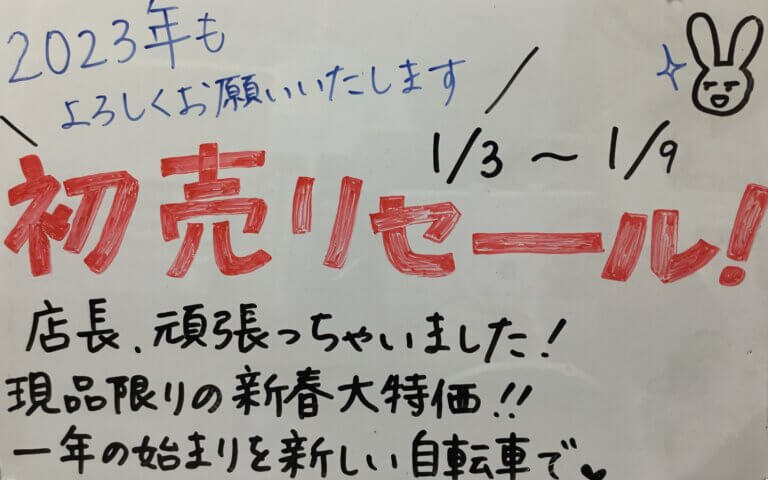 2023年も
よろしくお願いいたします
1/3 ～ 1/9
初売りセール!
店長、頑張っちゃいました!
現品限りの新春大特価!!
一年の始まりを新しい自転車で♥